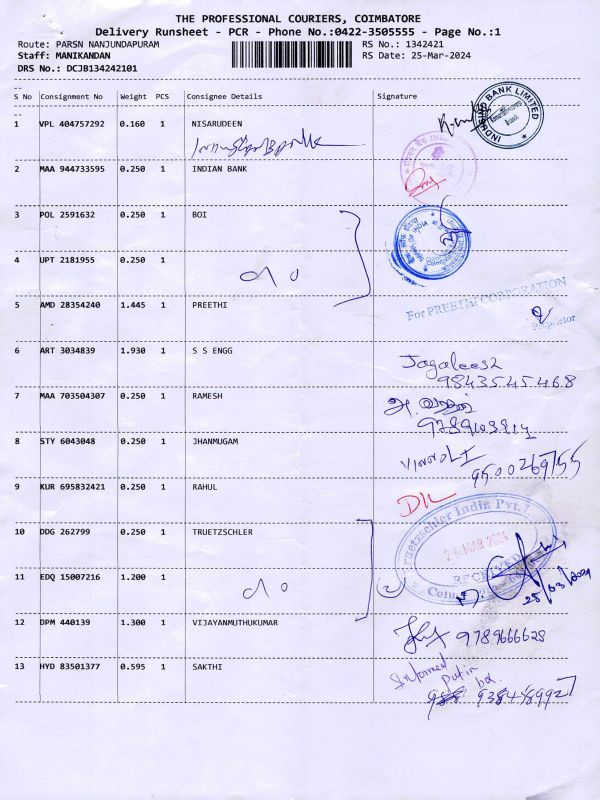 THE PROFESSIONAL COURIERS, COIMBATORE
Delivery Runsheet - PCR - Phone No.:0422-3505555 - Page No.:1
Route: PARSN NANJUNDAPURAM RS No.: 1342421
Staff: MANIKANDAN RS Date: 25-Mar-2024
DRS No.: DCJB134242101
S No Consignment No Weight PCS Consignee Details Signature
1 VPL 404757292 0.160 1 NISARUDEEN
BANK LIMITED
2 MAA 944733595 0.250 1 INDIAN BANK
3 POL 2591632 0.250 1 BOI
4 UPT 2181955 0.250 1
5 AMD 28354240 1.445 1 PREETHI
For PREETHI CORPORATION
Proprietor
6 ART 3034839 1.930 1 S S ENGG
98435 45 468
7 MAA 703504307 0.250 1 RAMESH
8 STY 6043048 0.250 1 JHANMUGAM
9500269755
9 KUR 695832421 0.250 1 RAHUL
DIL
10 DDG 262799 0.250 1 TRUETZSCHLER
Truetzschler India Pvt.
25 MAR 2024
RECEIVED
11 EDQ 15007216 1.200 1
25/03/2024
12 DPM 440139 1.300 1 VIJAYANMUTHUKUMAR
9789666628
13 HYD 83501377 0.595 1 SAKTHI
Informed
Put in